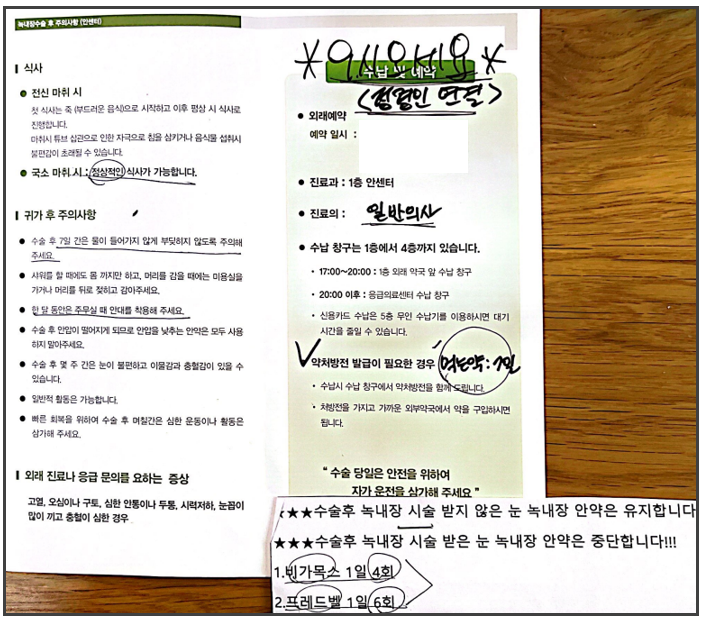 녹내장수술 후 주의사항 (안센터)
식사
전신 마취 시
첫 식사는 죽 (부드러운 음식)으로 시작하고 이후 평상 시 식사로
진행합니다.
마취시 튜브 삽관으로 인한 자극으로 침을 삼키거나 음식물 섭취시
불편감이 초래될 수 있습니다.
국소 마취 시 : 정상적인 식사가 가능합니다.
귀가 후 주의사항
수술 후 7일 간은 물이 들어가지 않게 부딪히지 않도록 주의해
주세요.
샤워를 할 때에도 몸 까지만 하고, 머리를 감을 때에는 미용실을
가거나 머리를 뒤로 젖히고 감아주세요.
한 달 동안은 주무실 때 안대를 착용해 주세요.
수술 후 안압이 떨어지게 되므로 안압을 낮추는 안약은 모두 사용
하지 말아주세요.
수술 후 몇 주 간은 눈이 불편하고 이물감과 충혈감이 있을 수
있습니다.
일반적 활동은 가능합니다.
빠른 회복을 위하여 수술 후 며칠간은 심한 운동이나 활동은
삼가해 주세요.
외래 진료나 응급 문의를 요하는 증상
고열, 오심이나 구토, 심한 안통이나 두통, 시력저하, 눈꼽이
많이 끼고 충혈이 심한 경우
수납 및 예약
외래예약
예약 일시 :
진료과 : 1층 안센터
진료의 : 일반의사
수납 창구는 1층에서 4층까지 있습니다.
17:00~20:00 : 1층 외래 약국 앞 수납 창구
20:00 이후 : 응급의료센터 수납 창구
신용카드 수납은 5층 무인 수납기를 이용하시면 대기
시간을 줄일 수 있습니다.
약처방전 발급이 필요한 경우
수납시 수납 창구에서 약처방전을 함께 드립니다.
처방전을 가지고 가까운 외부약국에서 약을 구입하시면
됩니다.
“ 수술 당일은 안전을 위하여
자가 운전을 삼가해 주세요 ”
★★★수술후 녹내장 시술 받지 않은 눈 녹내장 안약은 유지합니다
★★★수술후 녹내장 시술 받은 눈 녹내장 안약은 중단합니다!!!
1.빈가목스 1일 4회
2.프레드벨 1일 6회